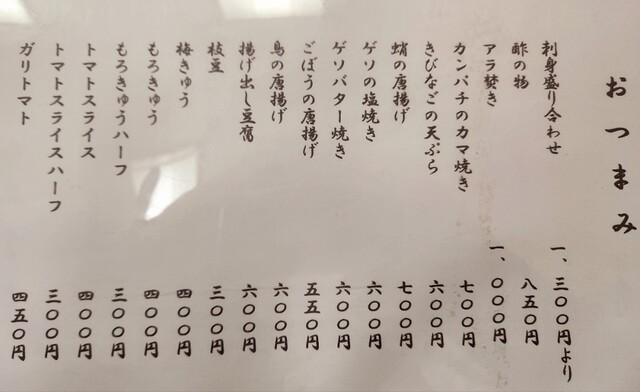 おつまみ
刺身盛り合わせ 一、三〇〇円より
酢の物 八五〇円
アラ焚き 一、〇〇〇円
カンパチのカマ焼き 七〇〇円
きびなごの天ぷら 六〇〇円
蛸の唐揚げ 七〇〇円
ゲソの塩焼き 六〇〇円
ゲソバター焼き 六〇〇円
ごぼうの唐揚げ 五五〇円
鳥の唐揚げ 六〇〇円
揚げ出し豆腐 六〇〇円
枝豆 三〇〇円
梅きゅう 四〇〇円
もろきゅう 四〇〇円
もろきゅうハーフ 三〇〇円
トマトスライス 四〇〇円
トマトスライスハーフ 三〇〇円
ガリトマト 四五〇円